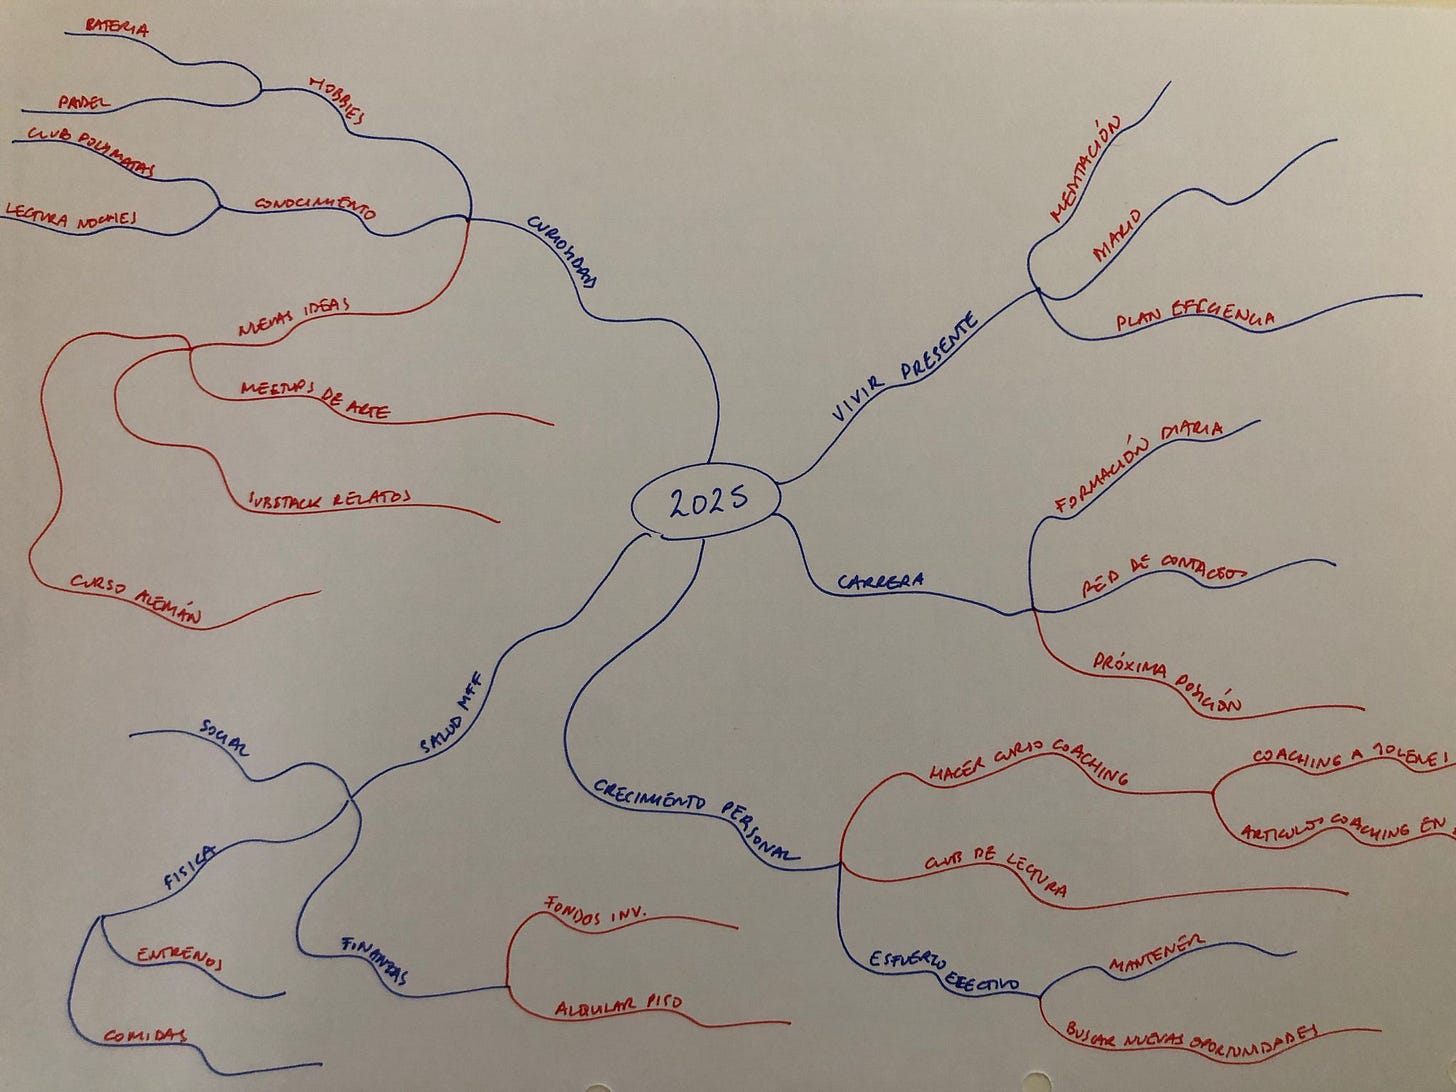 2025
CURIOSIDAD
HOBBIES
BATERIA
PADEL
CONOCIMIENTO
CLUB POLIMATAS
LECTURA NOCHES
NUEVAS IDEAS
MEETUPS DE ARTE
SUBSTACK RELATOS
CURSO ALEMÁN
VIVIR PRESENTE
MEDITACIÓN
MARIO
PLAN EFICIENCIA
CARRERA
FORMACIÓN DIARIA
RED DE CONTACTOS
PRÓXIMA POSICIÓN
CRECIMIENTO PERSONAL
HACER CURSO COACHING
COACHING A
ARTICULOS COACHING EN
CLUB DE LECTURA
ESFUERZO EFECTIVO
MANTENER
BUSCAR NUEVAS OPORTUNIDADES
SALUD MFF
SOCIAL
FISICA
ENTRENOS
COMIDAS
FINANZAS
FONDOS INV.
ALQUILAR PISO